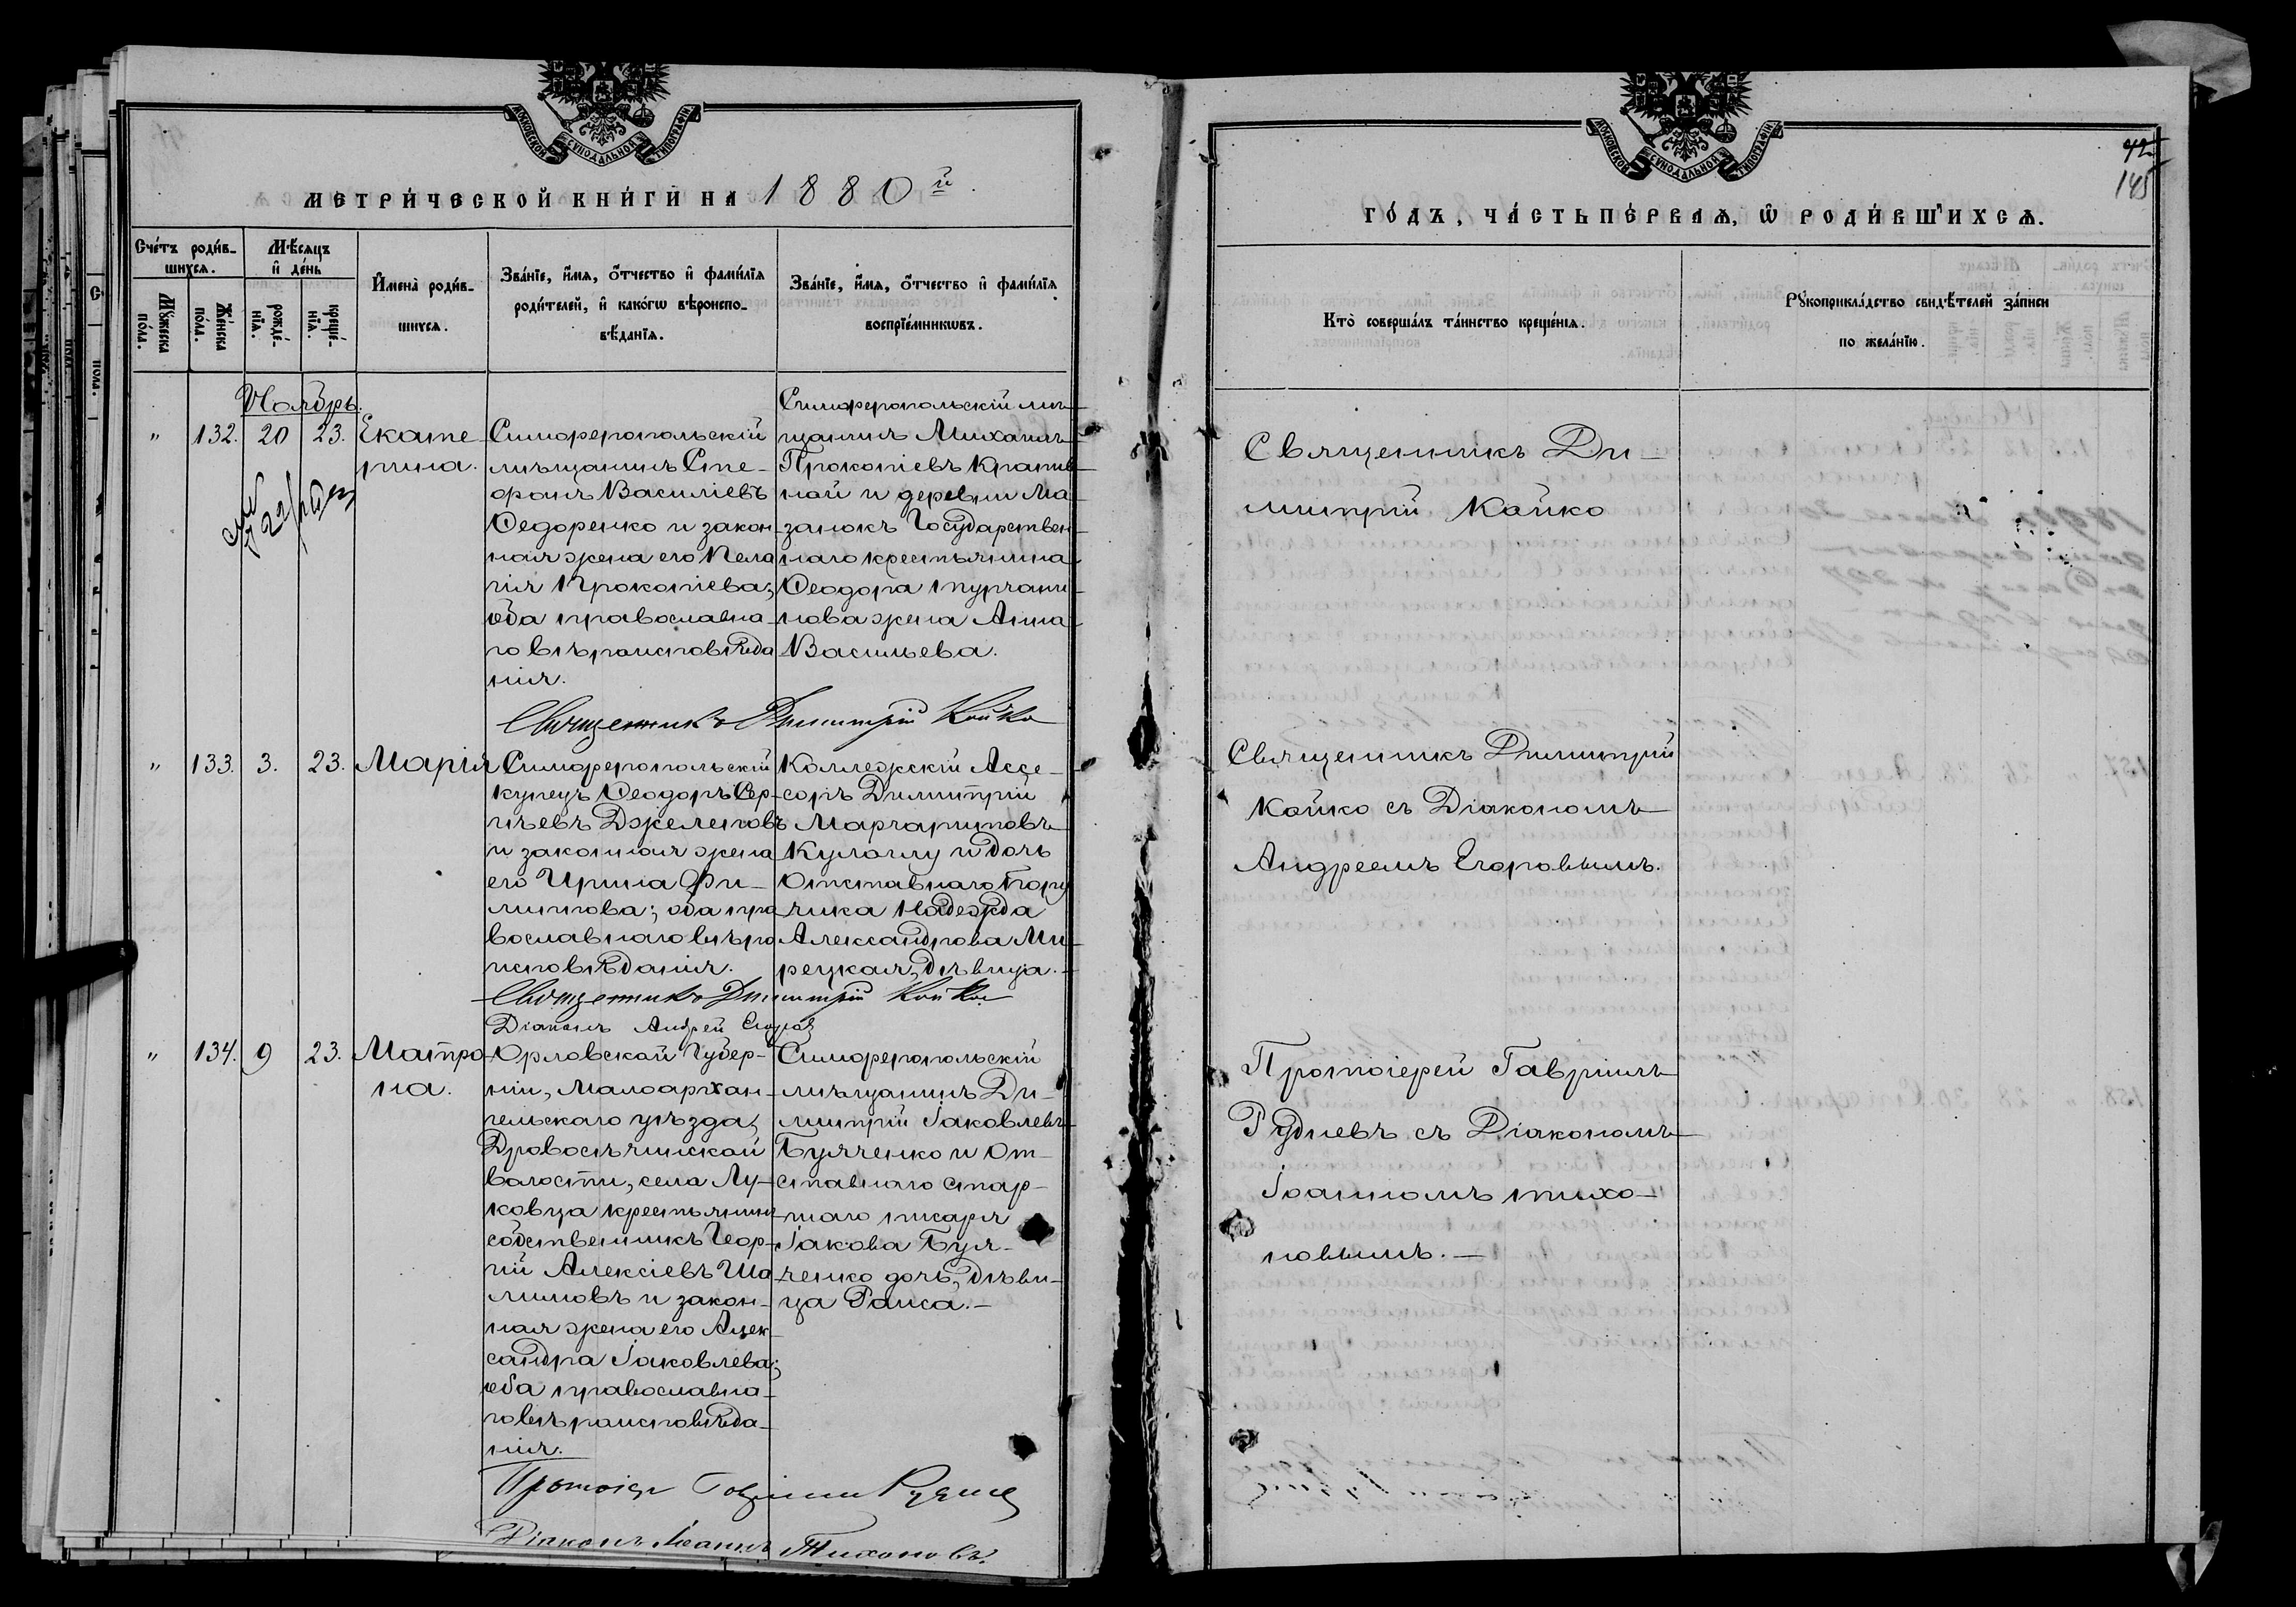 МОСКОВСКОЙ СѴНОДАЛЬНОЙ ТИПОГРАФІИ
МЕТРИ́ЧЕСКОЙ КНИ́ГИ НА 1880й
Сче́тъ роди́в-
шихся.
Мꙋ́жеска по́ла.
Же́нска по́ла.
Мѣ́сяцъ
и҆ де́нь
рожде́-
нїѧ.
креще́-
нїѧ.
И҆мена̀ роди́в-
шихся.
Зва́нїе, и҆́мѧ, ѻ҆́тчество и҆ фами́лїѧ
роди́телей, и҆ како́гѡ вѣроиспо-
вѣ́данїѧ.
Зва́нїе, и҆́мѧ, ѻ҆́тчество и҆ фами́лїѧ
воспрїе́мникѡвъ.
Ноябрь.
" 132. 20 23. Екате
рина.
Симферопольскій
мѣщанинъ Сте-
фанъ Василіевъ
Ѳедоренко и закон
ная жена его Пела
гія Прокопіева;
оба православна-
го вѣроисповѣда
нія.
Симферопольскій мѣ-
щанинъ Михаилъ
Прокопіевъ Крапив-
ной и деревни Ма-
занокъ Государствен-
наго крестьянина
Ѳеодора Турчани-
нова жена Анна
Васильева.
Священникъ Димитрій Койко
" 133. 3. 23. Марія
Симферопольскій
купецъ Ѳеодоръ Сер-
гѣевъ Джелеповъ
и законная жена
его Ирина Фи-
липпова; оба пра
вославнаго вѣро
исповѣданія.
Коллежскій Ассе-
соръ Димитрій
Маргаритовъ
Кулаглу и дочь
Отставнаго Пору
чика Надежда
Александрова Ми-
рецкая, дѣвица.-
Священникъ Димитрій Койко
Діаконъ Андрей Егоров
" 134. 9 23. Матро
на.
Орловской Губер-
ніи, Малоархан-
гельскаго уѣзда,
Дровосѣчинской
волости, села Лу-
ковца крестьянинъ
собственникъ Геор-
гій Алексіевъ Ша
лимовъ и закон-
ная жена его Алек-
сандра Іаковлева;
оба православна-
го вѣроисповѣда-
нія.
Симферопольскій
мѣщанинъ Ди-
митрій Іаковлевъ
Бугаенко и От-
ставнаго стар-
шаго писаря
Іакова Буга-
енко дочь, дѣви-
ца Раиса.-
Протоіер Гавріилъ Руднев
Діаконъ Іоаннъ Тихоновъ.
МОСКОВСКОЙ СѴНОДАЛЬНОЙ ТИПОГРАФІИ
42
145
ГО́ДЪ, ЧА́СТЬ ПЕ́РВАѦ, Ѡ҆ РОДИ́ВШИХСѦ.
Кто̀ соверша́лъ та́инство креще́нїѧ.
Рꙋкоприкла́дство свидѣ́телей за́писи
по жела́нїю.
Священникъ Ди-
митрій Койко
Священникъ Димитрій
Койко съ Діакономъ
Андреемъ Егоровымъ.
Протоіерей Гавріилъ
Рудневъ съ Діакономъ
Іоанномъ Тихо-
новымъ.-